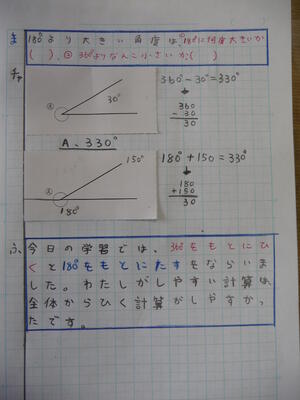 ま
180°より大きい角度は、①180°に何度大きいか
( )、②360°よりなんこ小さいか( )
チャ
あ
30°
360°-30°=330°
360
- 30
30
A、330°
150°
あ
180°
180°+150=330°
180
+150
30
ふ
今日の学習では、360°をもとにひ
くと180°をもとにたすをならいま
した。わたしがしやすい計算は、
全体からひく計算がしやすか
ったです。